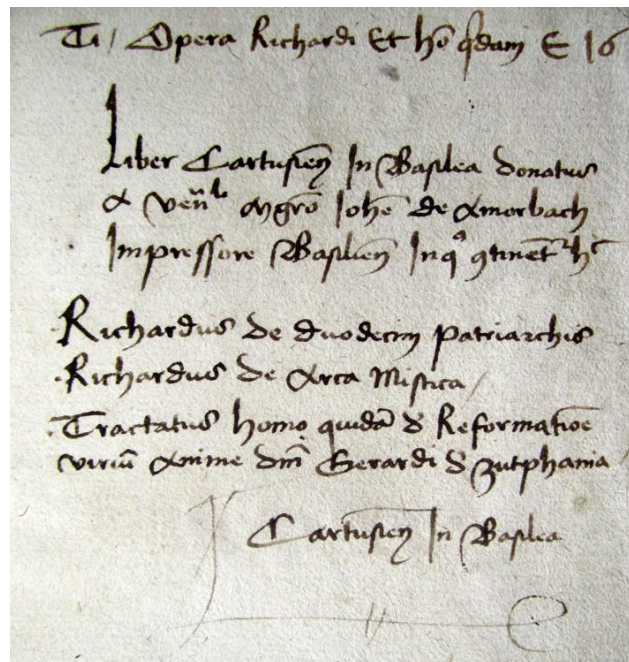 Ti / Opera Richardi Et hō qdam E 16
Liber Cartusieñ In Basilea donatus
a veñli mgrō Johē de Amorbach
Impressore Basilieñ In qo 9tinet hc
Richardus de duodecim patriarchis
Richardus de Arca Mistica /
Tractatus homo quidā d Reformatiōe
viriū Anime dni Gerardi d zutphania
Cartusieñ In Basilea